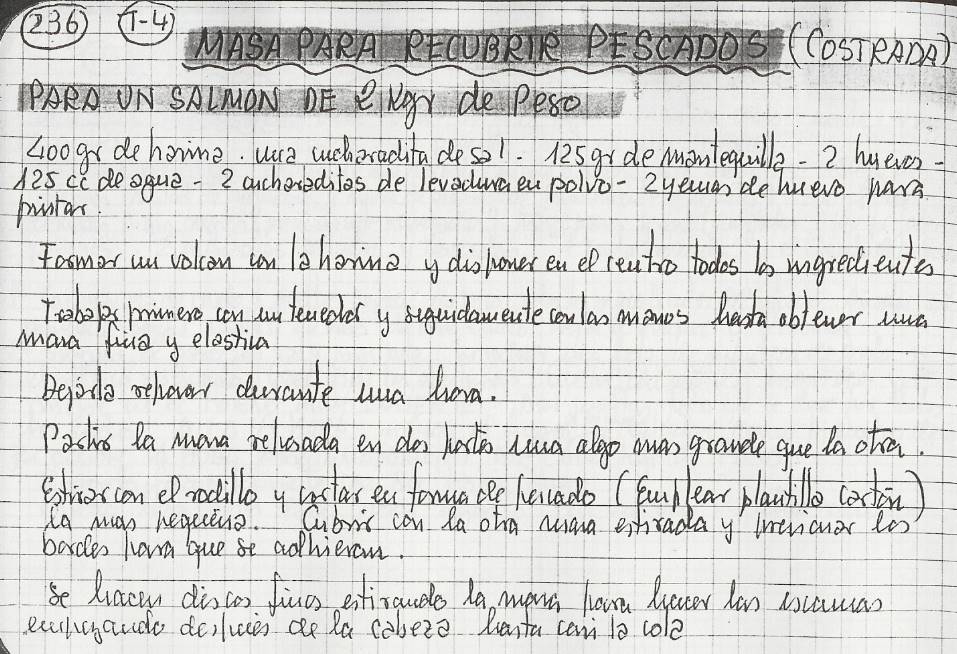 236 T-4 MASA PARA RECUBRIR PESCADOS (COSTRADA)
PARA UN SALMON DE 2 Kgr de Peso
400 gr de harina. una cucharadita de sal - 125 gr de mantequilla - 2 huevos -
125 cc de agua - 2 cucharaditas de levadura en polvo - 2 yemas de huevo para
pintar.
Formar un volcan con la harina y disponer en el centro todos los ingredientes
Trabajar primero con un tenedor y seguidamente con las manos hasta obtener una
masa fina y elastica
Dejarla reposar durante una hora.
Partir la masa reposada en dos partes una algo mas grande que la otra.
Estirar con el rodillo y cortar en forma de pescado (Emplear plantilla cartón)
la mas pequeña. Cubrir con la otra masa estirada y presionar los
bordes para que se adhieran.
Se hacen discos finos estirando la masa para hacer las escamas
empezando despues de la cabeza hasta casi la cola